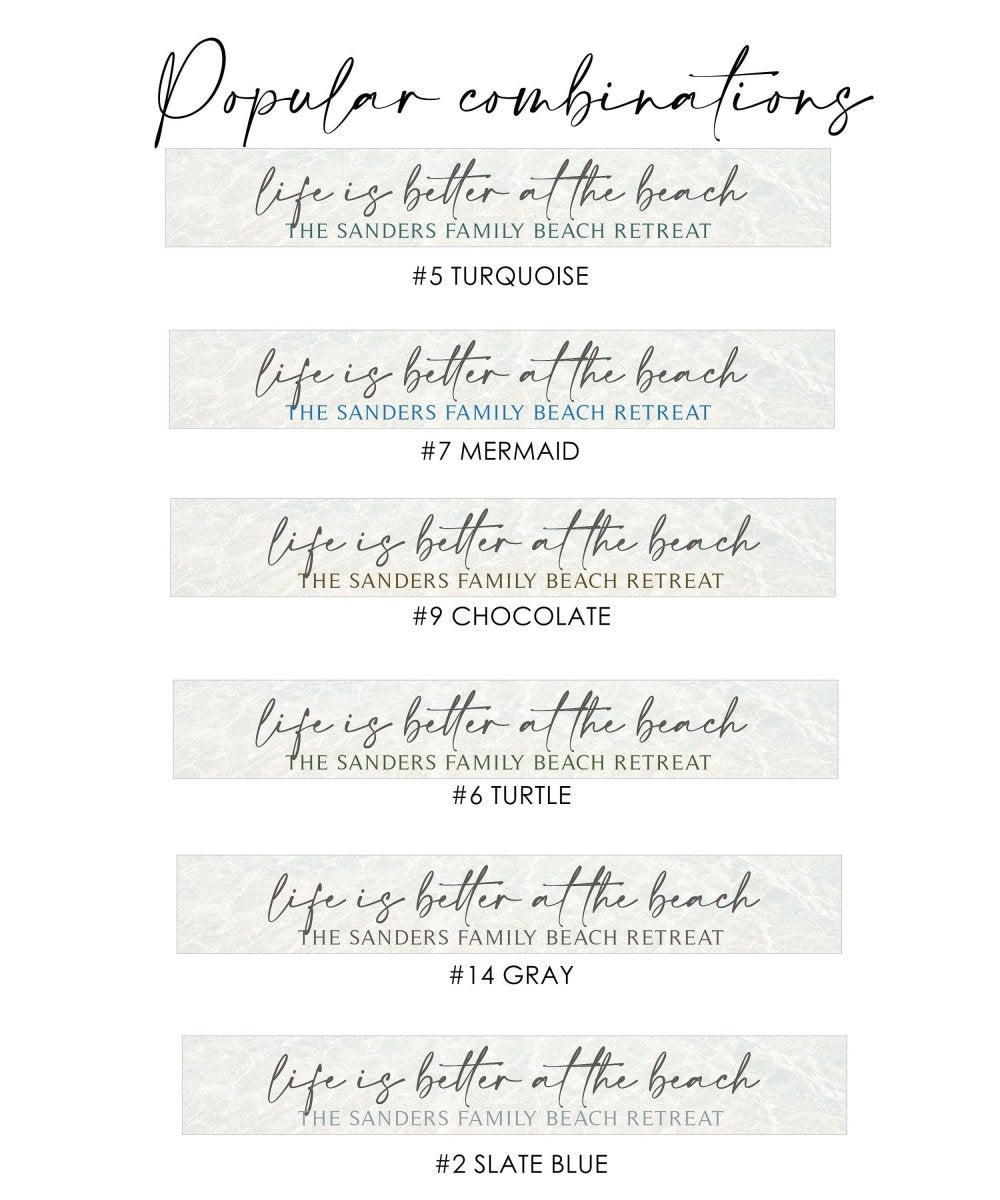 Popular combinations
life is better at the beach
THE SANDERS FAMILY BEACH RETREAT
#5 TURQUOISE
life is better at the beach
THE SANDERS FAMILY BEACH RETREAT
#7 MERMAID
life is better at the beach
THE SANDERS FAMILY BEACH RETREAT
#9 CHOCOLATE
life is better at the beach
THE SANDERS FAMILY BEACH RETREAT
#6 TURTLE
life is better at the beach
THE SANDERS FAMILY BEACH RETREAT
#14 GRAY
life is better at the beach
THE SANDERS FAMILY BEACH RETREAT
#2 SLATE BLUE